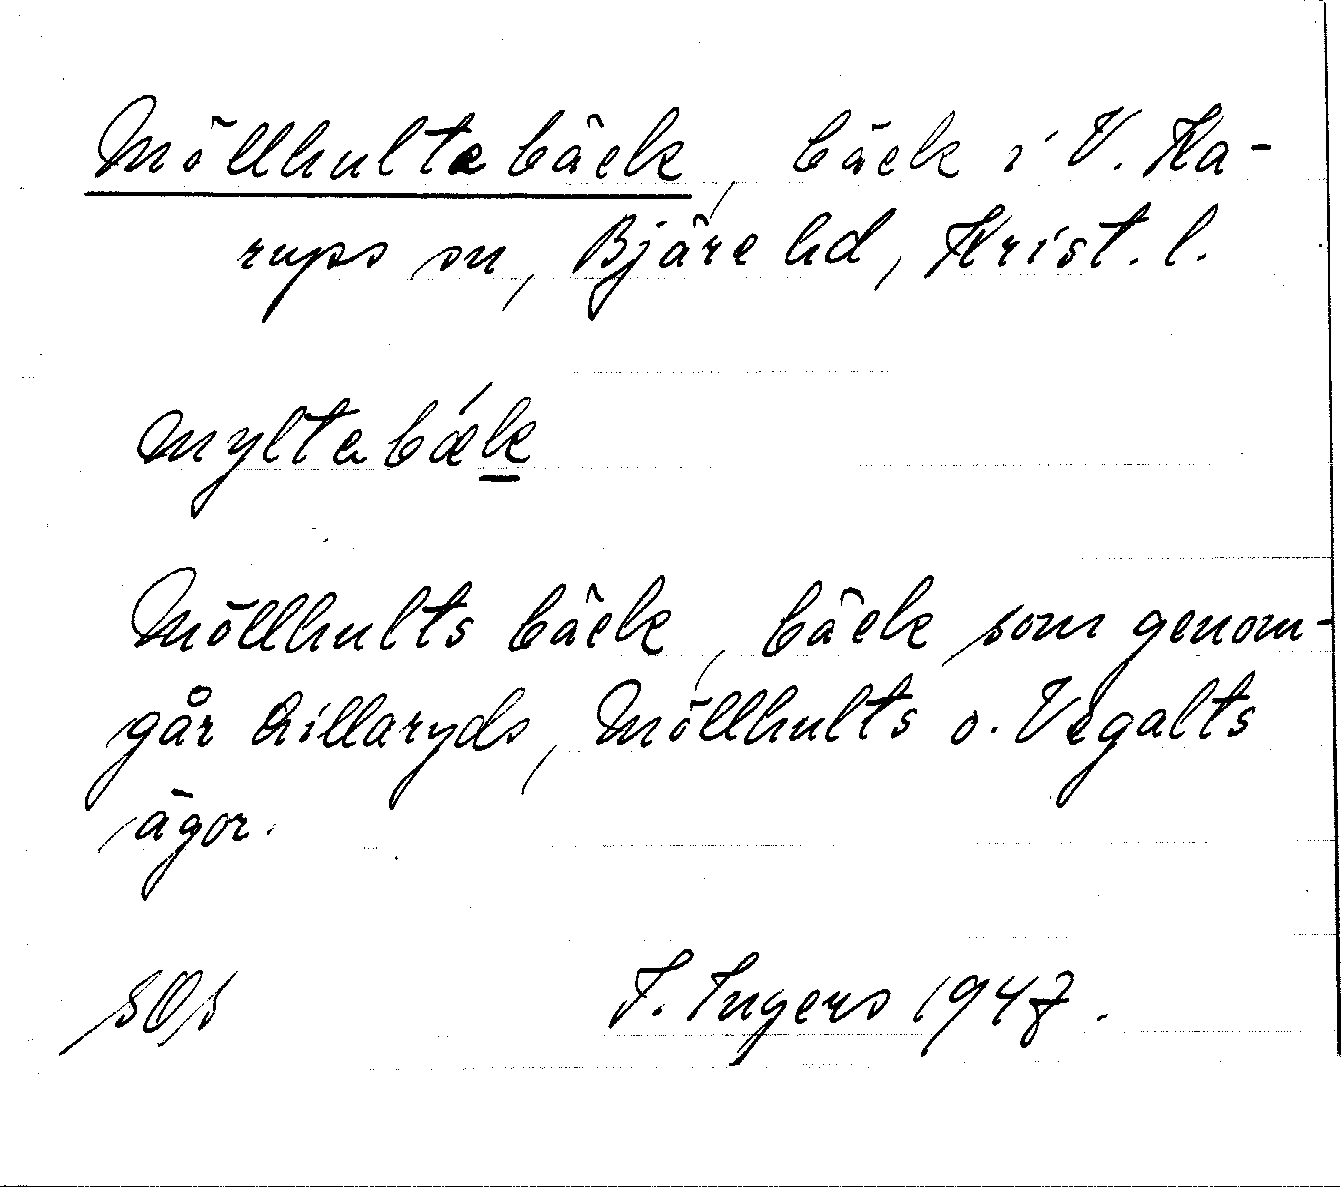 Möllhultabäck, bäck i V. Ka-
rups sn, Bjäre hd, Krist. l.
myltabǽk
Möllhults bäck, bäck som genom-
går Lillaryds, Möllhults o. Vegalts
ägor.
sOs I. Ingers 1947.